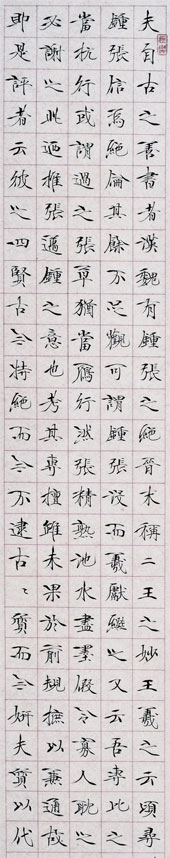 夫自古之善書者漢魏有鍾張之絕晉末稱二王之妙王羲之云頃尋
鍾張信爲絕倫其餘不足觀可謂鍾張沒而羲獻繼之又云吾書比之
當抗行或謂過之張草猶當鴈行然張精熟池水盡墨假令寡人耽之
必謝之此乃推張邁鍾之意也考其專擅雖未果於前規摭以兼通故
即是評者云彼之四賢古今特絕而今不逮古〻質而今妍夫質以代